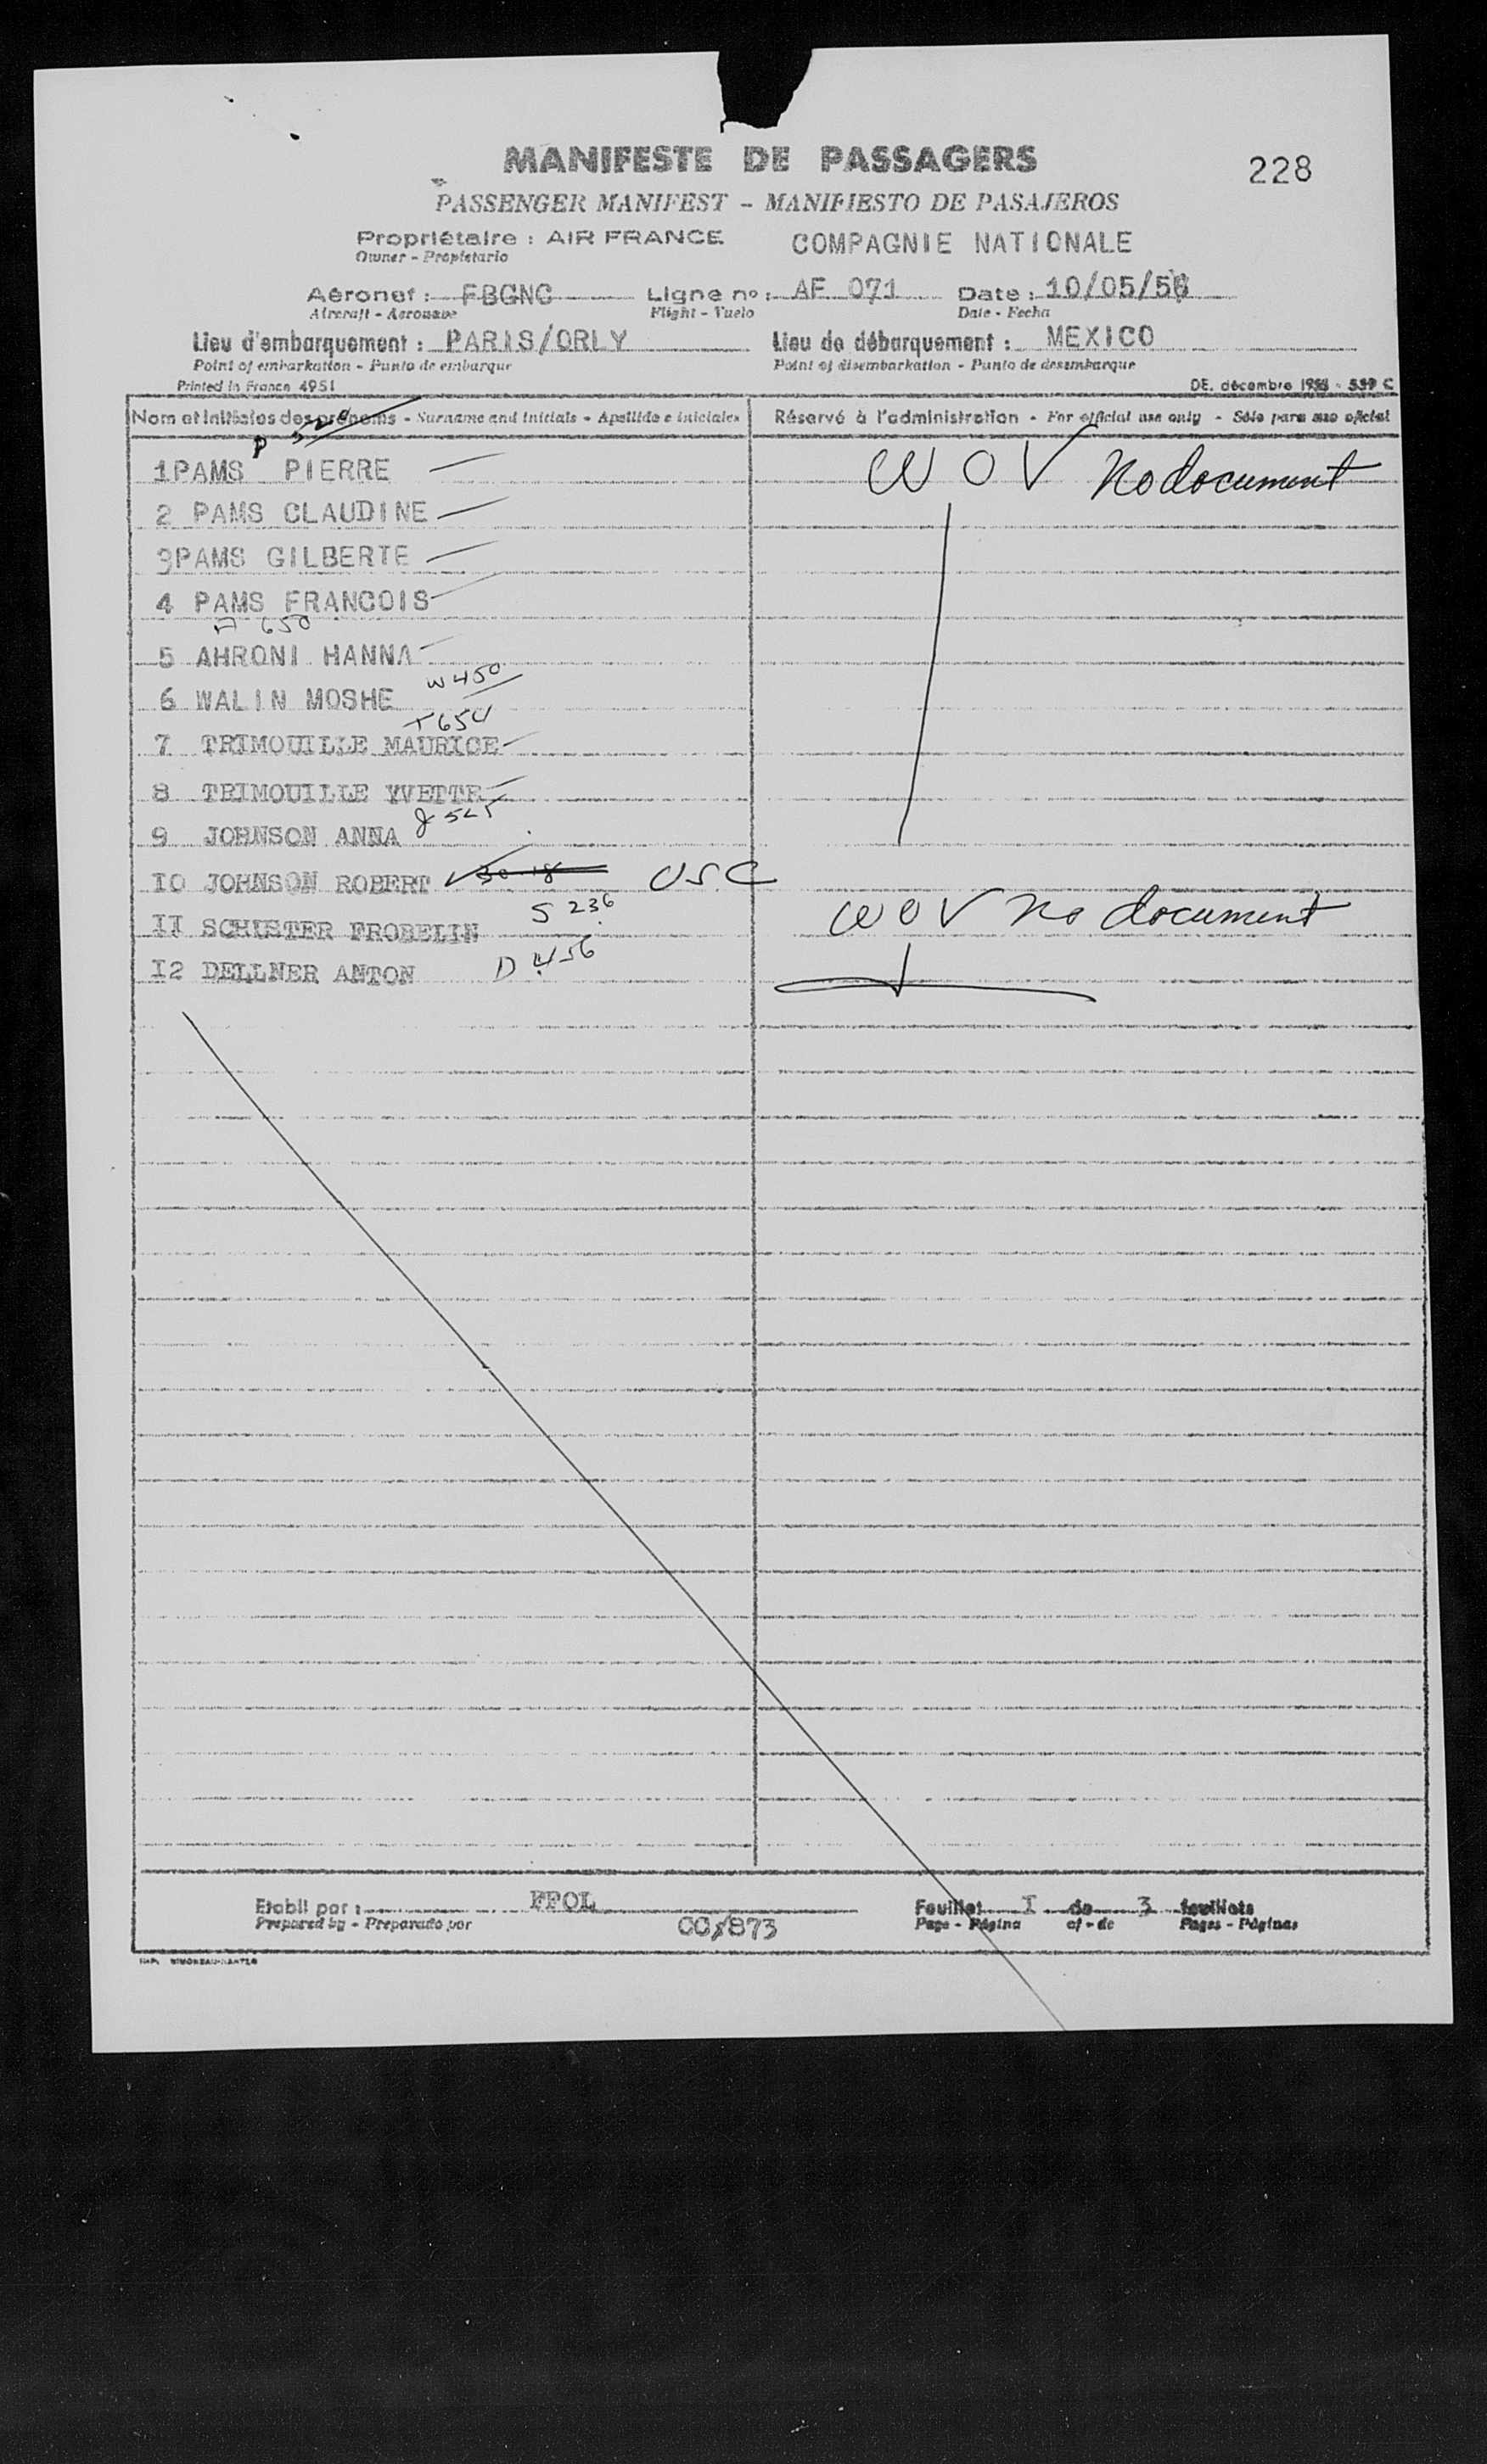 MANIFESTE DE PASSAGERS
228
PASSENGER MANIFEST - MANIFIESTO DE PASAJEROS
Propriétaire : AIR FRANCE COMPAGNIE NATIONALE
Owner - Propietario
Aéronef : FBGNC Ligne no : AF 071 Date : 10/05/56
Aircraft - Aeronave Flight - Vuelo Date - Fecha
Lieu d'embarquement : PARIS/ORLY Lieu de débarquement : MEXICO
Point of embarkation - Punto de embarque Point of disembarkation - Punto de desembarque
Printed in France 4951 DE. décembre
Nom et initiales des prénoms - Surname and initials - Apellido e iniciales Réservé à l'administration - For official use only - Sólo para uso oficial
P
1PAMS PIERRE W O V No document
2 PAMS CLAUDINE
3PAMS GILBERTE
4 PAMS FRANCOIS
A 650
5 AHRONI HANNA
W450
6 WALIN MOSHE
T654
7 TRIMOUILLE MAURICE
8 TRIMOUILLE YVETTE
J 525
9 JOHNSON ANNA
I0 JOHNSON ROBERT USC
S 236
II SCHUSTER FROBELIN W O V No document
D 456
I2 DELLNER ANTON
Etabli par : FPOL Feuillet I de 3 feuillets
Prepared by - Preparado por CC/873 Page - Página of - de Pages - Páginas